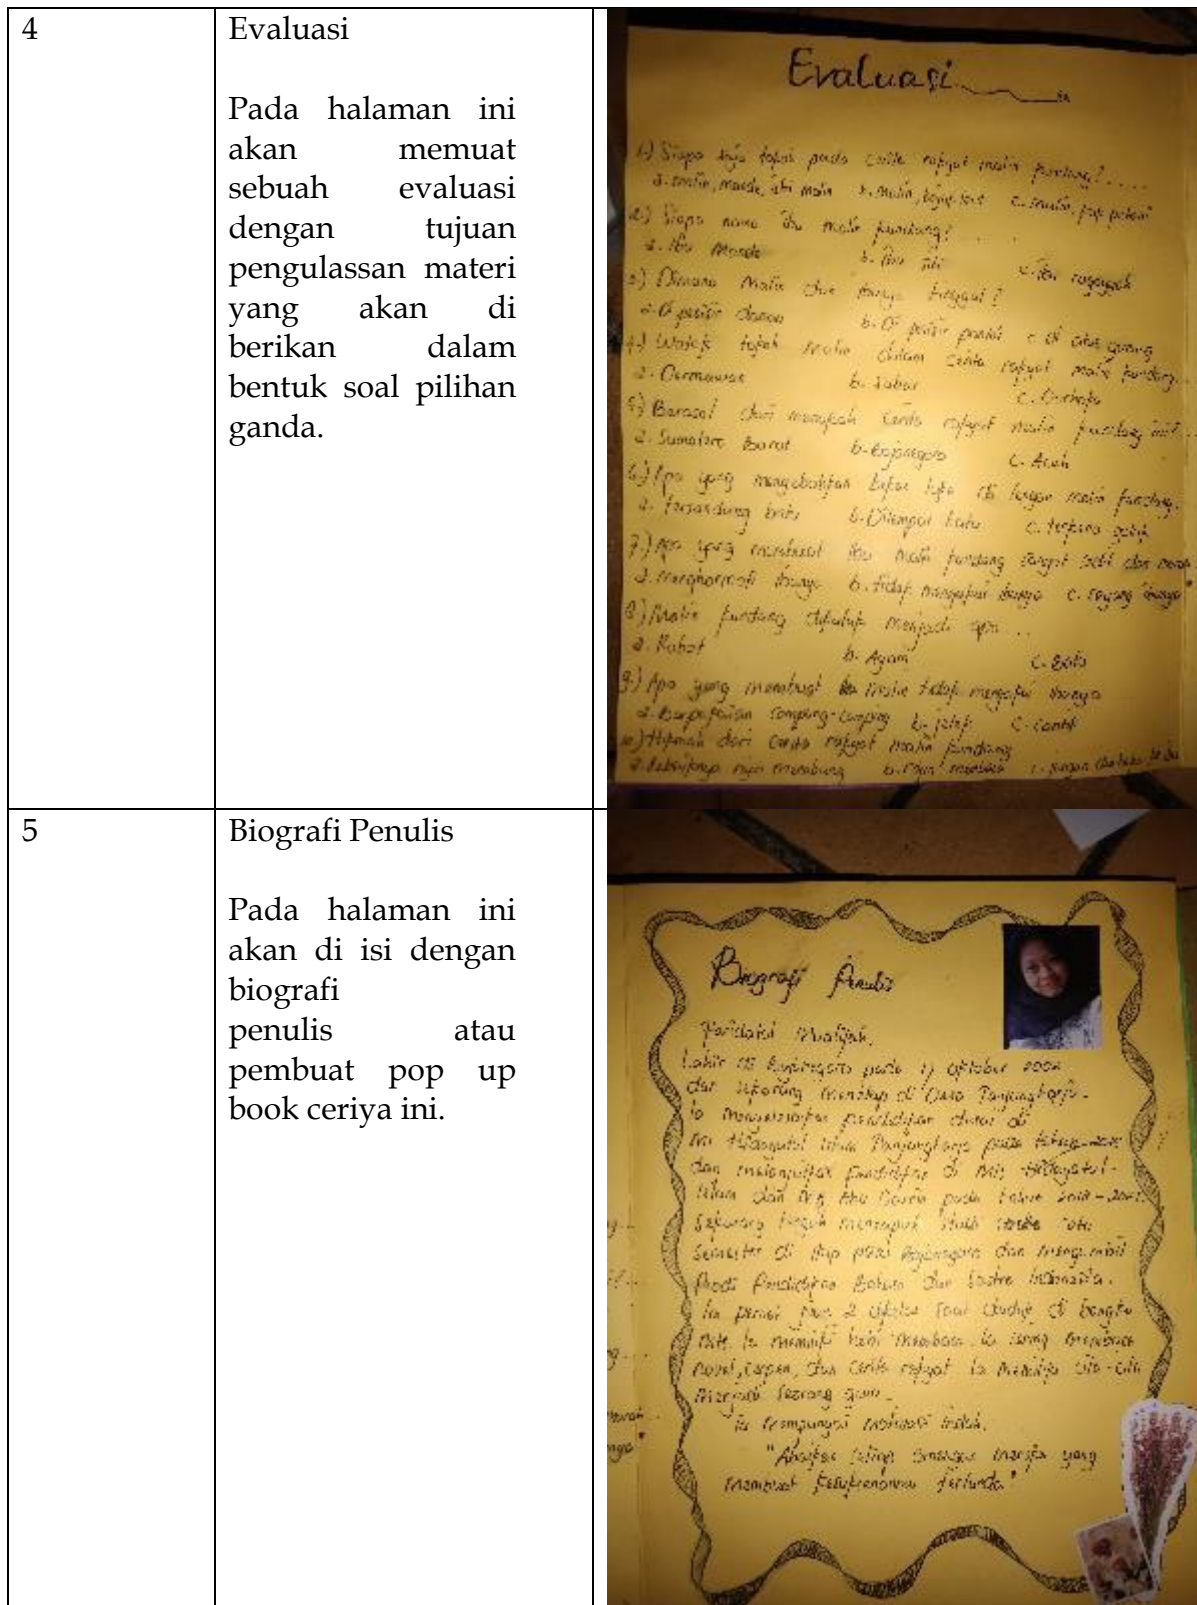 4
Evaluasi
Pada halaman ini
akan memuat
sebuah evaluasi
dengan tujuan
pengulassan materi
yang akan di
berikan dalam
bentuk soal pilihan
ganda.
Evaluasi
1.) Siapa saja tokoh pada cerita rakyat malin kundang?.....
c. malin,
2.) Siapa nama ibu malin kundang?
a. Ibu Mande b. Ibu c. Ibu
3.) Dimana Malin dan ibunya tinggal?
a. Di pesisir danau b. Di pesisir pantai c. di atas gunung
4.) Watak tokoh malin dalam cerita rakyat malin kundang...
a. Dermawan b. Sabar c. Durhaka
5.) Berasal dari manakah cerita rakyat malin kundang ini?..
a. Sumatera Barat b. Bojonegoro c. Aceh
6.) Apa yang mengebabkan bekas luka di lengan malin kundang.
a. tersandung batu b. Dilempar batu c. terkena golok
7.) Apa yang membuat ibu malin kundang sangat sedih dan marah.
a. menghormati ibunya b. tidak mengakui ibunya c. sayang ibunya
8.) Malin kundang dikutuk menjadi apa...
a. Robot b. Ayam c. Batu
9.) Apa yang membuat malin tidak mengakui ibunya
a. Berpakaian compang-camping b. jelek c. cantik
10.) Hikmah dari cerita rakyat malin kundang
a. rajin menabung b. rajin membaca c. jangan durhaka
5
Biografi Penulis
Pada halaman ini
akan di isi dengan
biografi
penulis atau
pembuat pop up
book ceriya ini.
Biografi Penulis
Faridatul
Lahir di Bojonegoro pada 17 Oktober 2002
dan sekarang menetap di Desa Tanjungharjo.
Ia menyelesaikan pendidikan dasar di
Islam Tanjungharjo pada tahun
dan melanjutkan pendidikan di MTs Hidayatul-
Islam dan MA Abu Darrin pada tahun 2018-2021
Sekarang tengah menempuh satu
Semester di Ikip PGRI Bojonegoro dan mengambil
Prodi Pendidikan Bahasa dan Sastra Indonesia.
Ia pernah 2 saat duduk di bangku
MTs. Ia memiliki hobi membaca. Ia sering membaca
novel, cerpen, dan cerita rakyat. Ia memiliki cita-cita
menjadi seorang guru.
Ia mempunyai motivasi indah.
"Abaikan mereka yang
membuat kesuksesanmu tertunda"